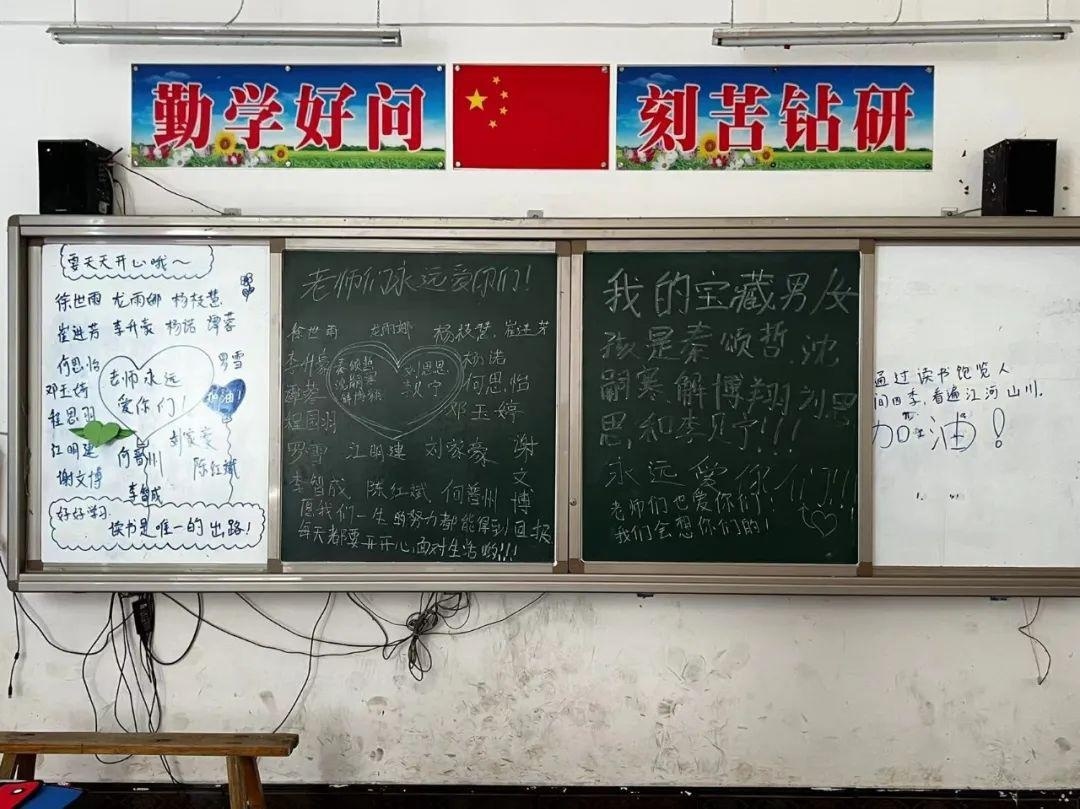 勤学好问
刻苦钻研
要天天开心哦～
徐世雨 龙雨娜 杨枝慧
崔进芳 李升豪 杨诺 谭蓉
何思怡
罗雪
邓玉婷
程思羽
江明建
谢文博
老师永远
爱你们！
加油！
何普州
刘家豪
陈红斌
李智成
好好学习
读书是唯一的出路！
老师们永远爱你们！
徐世雨 龙雨娜 杨枝慧 崔进芳
李升豪
谭蓉
程国羽
秦颂哲
沈嗣寒
解博翔
刘思思
杨诺
何思怡
邓玉婷
罗雪 江明建 刘家豪
谢文博
李智成 陈红斌 何普州
愿我们一生的努力都能得到回报
每天都要开开心心面对生活哟!!!
我的宝藏男/女
孩是秦颂哲 沈
嗣寒 解博翔 刘思
思 和李贝宁!!!
永远爱你们!!!
老师们也爱你们！
我们会想你们的！
通过读书饱览人
间四季，看遍江河山川。
加油！